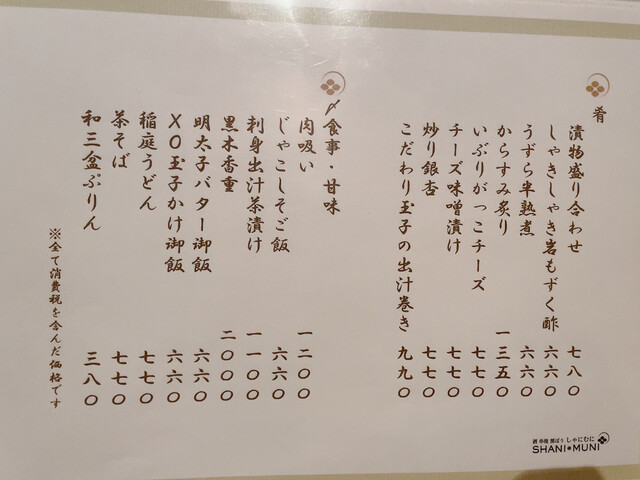 肴
漬物盛り合わせ 七八〇
しゃきしゃき岩もずく酢 六六〇
うずら半熟煮 六六〇
からすみ炙り 一三五〇
いぶりがっこチーズ 七七〇
チーズ味噌漬け 七七〇
炒り銀杏 七七〇
こだわり玉子の出汁巻き 九九〇
〆食事・甘味
肉吸い 一二〇〇
じゃこしそご飯 六六〇
刺身出汁茶漬け 一一〇〇
黒木香重 二〇〇〇
明太子バター御飯 六六〇
XO玉子かけ御飯 六六〇
稲庭うどん 七七〇
茶そば 七七〇
和三盆ぷりん 三八〇
※全て消費税を含んだ価格です
酒 串焼 麺ばう しゃにむに
SHANI MUNI